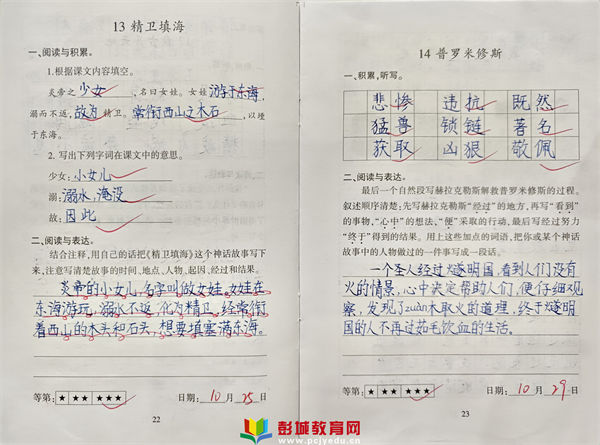 13 精卫填海
一、阅读与积累。
1.根据课文内容填空。
炎帝之少女,名曰女娃。女娃游于东海,
溺而不返,故为精卫。常衔西山之木石,以堙
于东海。
2. 写出下列字词在课文中的意思。
少女:小女儿
溺:溺水,淹没
故:因此
二、阅读与表达。
结合注释,用自己的话把《精卫填海》这个神话故事写下
来,注意写清楚故事的时间、地点、人物、起因、经过和结果。
炎帝的小女儿,名字叫做女娃。女娃在
东海游玩,溺水不返,化为精卫,经常衔
着西山的木头和石头,想要填塞满东海。
等第: ★ ★★ ★★★ 日期: 10 月 25 日
22
14 普罗米修斯
一、积累,听写。
悲惨 违抗 既然
猛兽 锁链 著名
获取 凶狠 敬佩
二、阅读与表达。
最后一个自然段写赫拉克勒斯解救普罗米修斯的过程。
叙述顺序清楚:先写赫拉克勒斯“经过”的地方,再写“看到”
的事物,“心中”的想法,“便”采取的行动,最后写经过努力
“终于”得到的结果。用上这些加点的词语,把你或某个神话
故事中的人物做过的一件事写成一段话。
一个圣人经过燧明国,看到人们没有
火的情景,心中决定帮助人们,便仔细观
察,发现了zuàn木取火的道理,终于燧明
国的人不再过茹毛饮血的生活。
等第: ★ ★★ ★★★ 日期: 10 月 29 日
23
彭城教育网
www.pcjyedu.cn